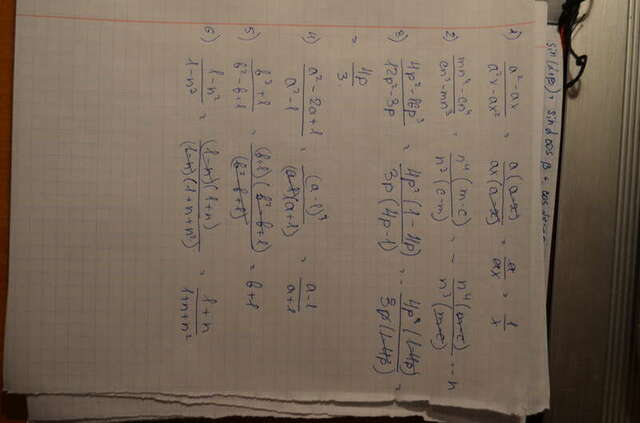 sin(α+β) = sin α cos β + cos
1) (a²-ax)/(a²x-ax²) = a(a-x)/(ax(a-x)) = a/(ax) = 1/x
2) (mn⁴-cn⁴)/(cn³-mn³) = n⁴(m-c)/(n³(c-m)) = - n⁴(m-c)/(n³(m-c)) = -n
3) (4p²-16p³)/(12p²-3p) = 4p²(1-4p)/(3p(4p-1)) = - 4p²(1-4p)/(3p(1-4p)) =
= 4p/3
4) (a²-2a+1)/(a²-1) = (a-1)²/((a-1)(a+1)) = (a-1)/(a+1)
5) (b³+1)/(b²-b+1) = (b+1)(b²-b+1)/(b²-b+1) = b+1
6) (1-n²)/(1-n³) = (1-n)(1+n)/((1-n)(1+n+n²)) = (1+n)/(1+n+n²)